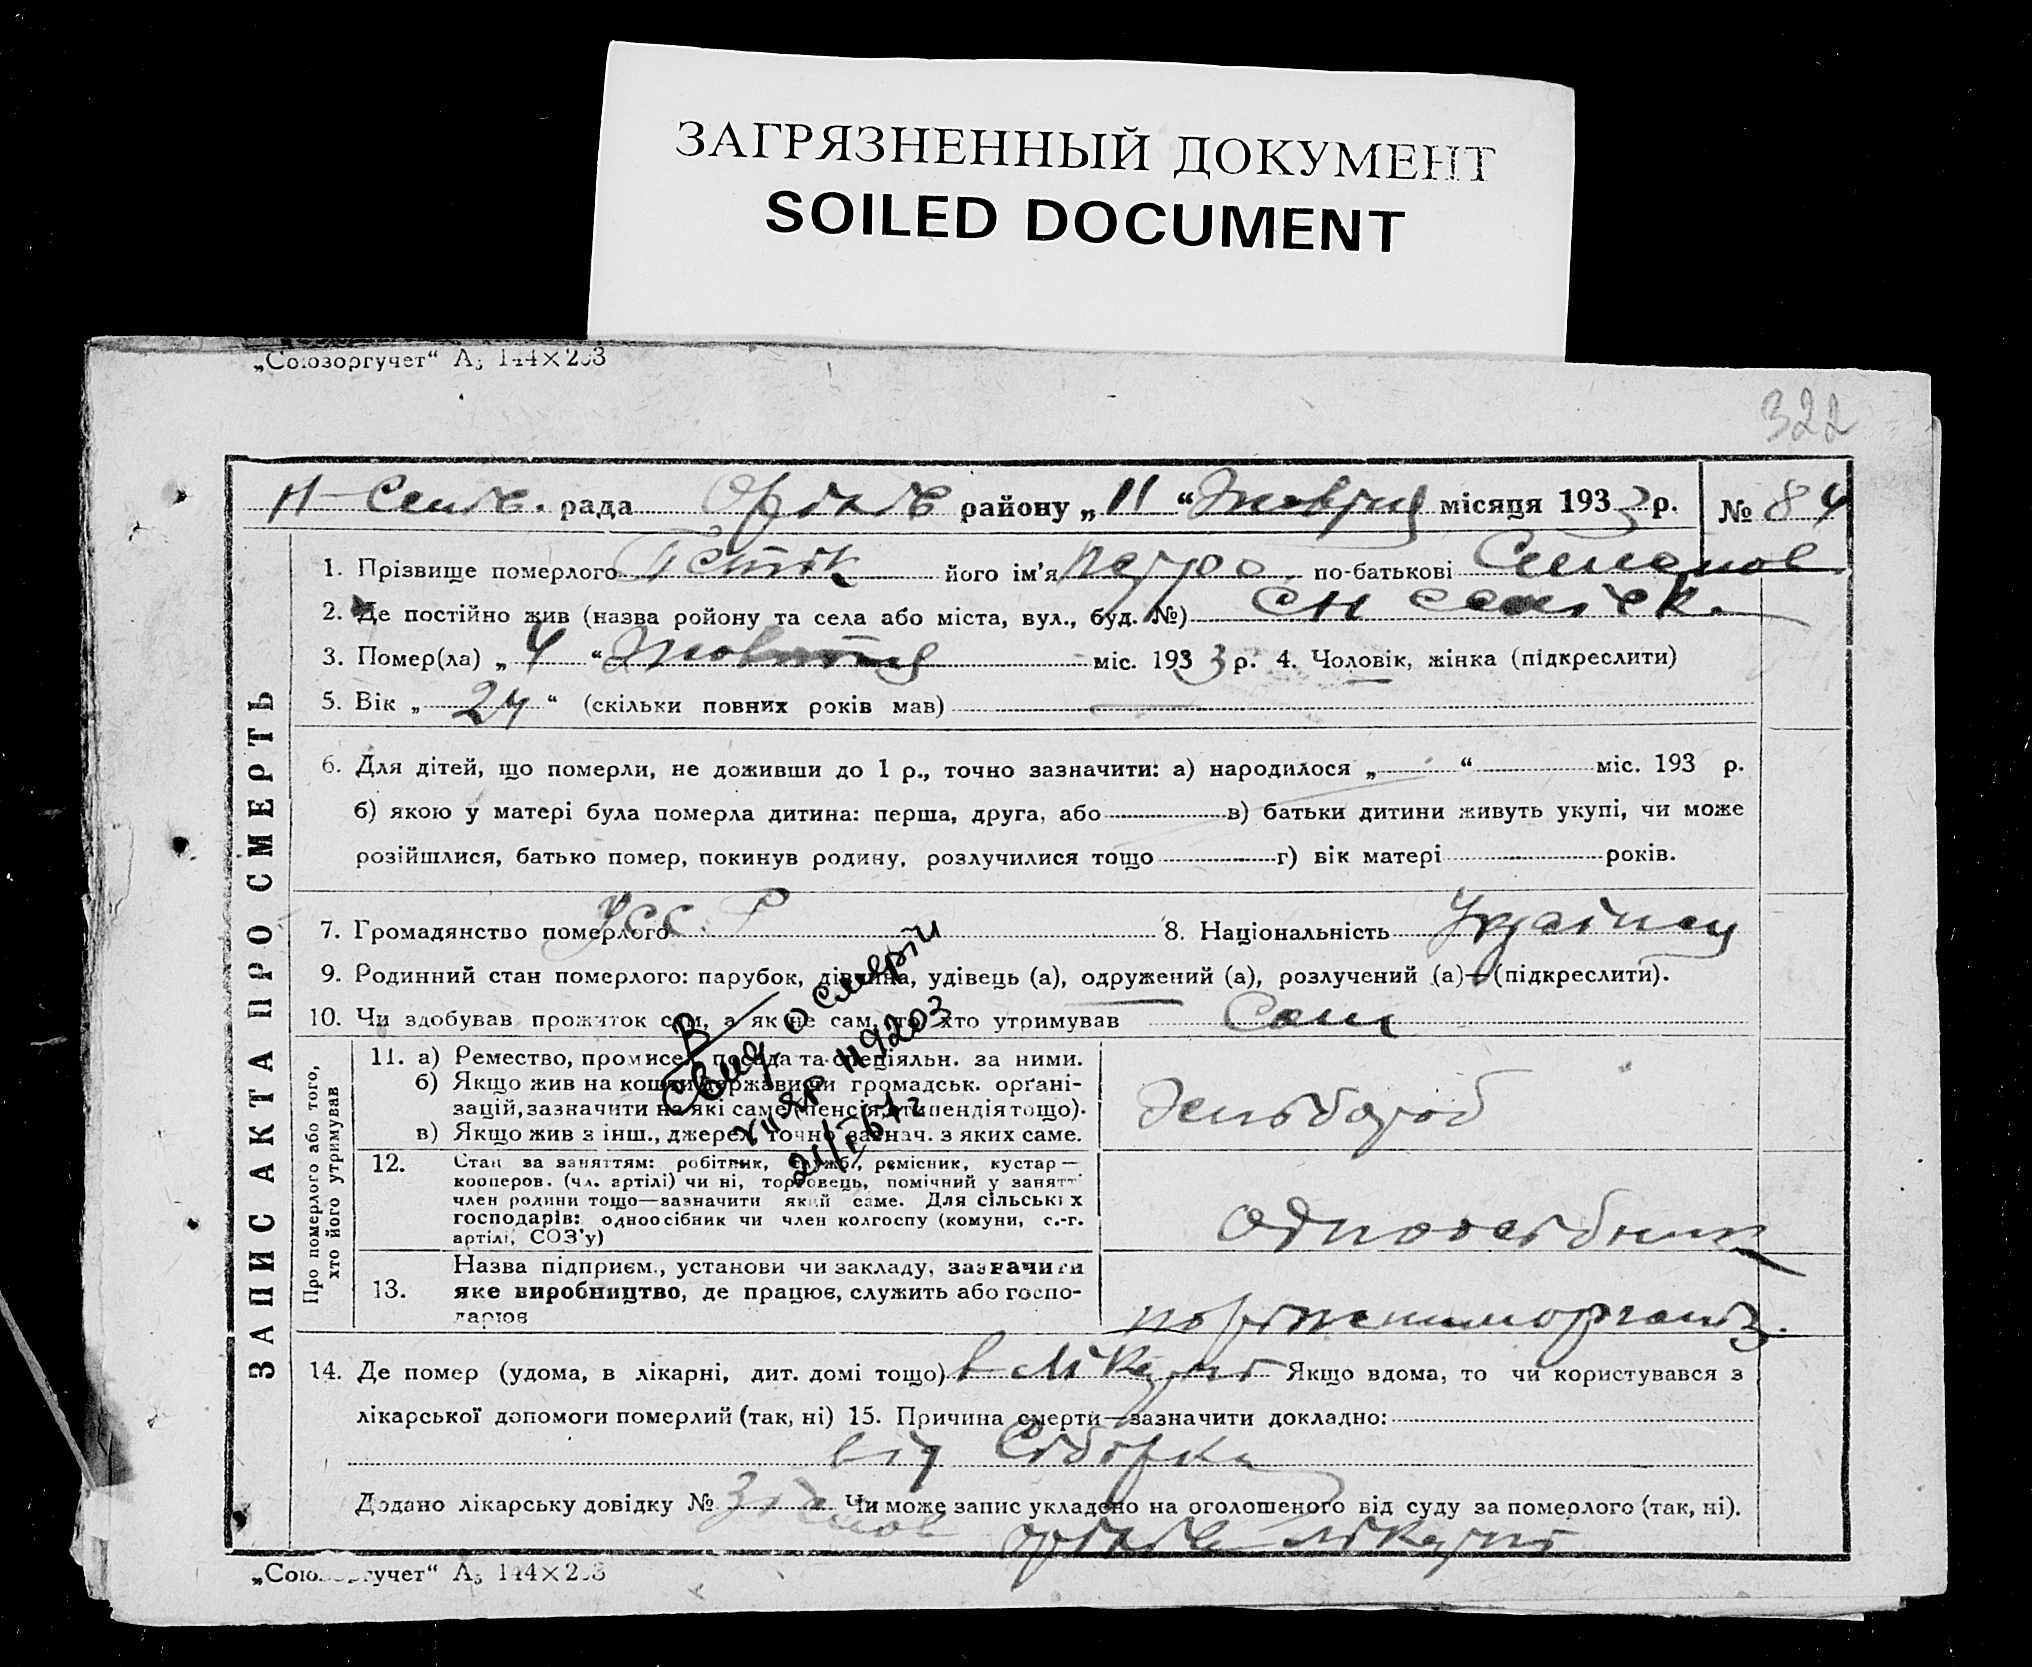 ЗАГРЯЗНЕННЫЙ ДОКУМЕНТ
SOILED DOCUMENT
„Союзоргучет“ А5 144×203
322
рада району „11“ Жовтня місяця 1933 р. № 84
1. Прізвище померлого його ім'я Петро по-батькові Семенов.
2. Де постійно жив (назва ройону та села або міста, вул., буд. №)
3. Помер(ла) „4“ Жовтня міс. 1933 р. 4. Чоловік, жінка (підкреслити)
5. Вік „24“ (скільки повних років мав)
6. Для дітей, що померли, не доживши до 1 р., точно зазначити: а) народилося „ “ міс. 193 р.
б) якою у матері була померла дитина: перша, друга, або в) батьки дитини живуть укупі, чи може
розійшлися, батько помер, покинув родину, розлучилися тощо г) вік матері років.
7. Громадянство померлого УССР 8. Національність Українец
9. Родинний стан померлого: парубок, дівчина, удівець (а), одружений (а), розлучений (а)—(підкреслити).
10. Чи здобував прожиток сам, а як не сам, то хто утримував Сам
11. а) Ремество, промисел, посада та спеціяльн. за ними.
б) Якщо жив на кошти держави чи громадськ. орґані-
зацій, зазначити на які саме (пенсія, стипендія тощо).
в) Якщо жив з інш., джерел точно зазнач. з яких саме.
Хлібороб
12. Стан за заняттям: робітник, служб., ремісник, кустар—
кооперов. (чл. артілі) чи ні, торговець, помічний у занятті
член родини тощо—зазначити який саме. Для сільських
господарів: одноосібник чи член колгоспу (комуни, с.-г.
артілі, СОЗ'у)
одноосібник
13. Назва підприєм., установи чи закладу, зазначити
яке виробництво, де працює, служить або госпо-
дарює
14. Де помер (удома, в лікарні, дит. домі тощо) в лікарні Якщо вдома, то чи користувався з
лікарської допомоги померлий (так, ні) 15. Причина смерти—зазначити докладно:
від
Додано лікарську довідку № 3 Чи може запис укладено на оголошеного від суду за померлого (так, ні).
лікарні
„Союзоргучет“ А5 144×203
ЗАПИС АКТА ПРО СМЕРТЬ
Про померлого або того,
хто його утримував
В
Свид о смерти
119203